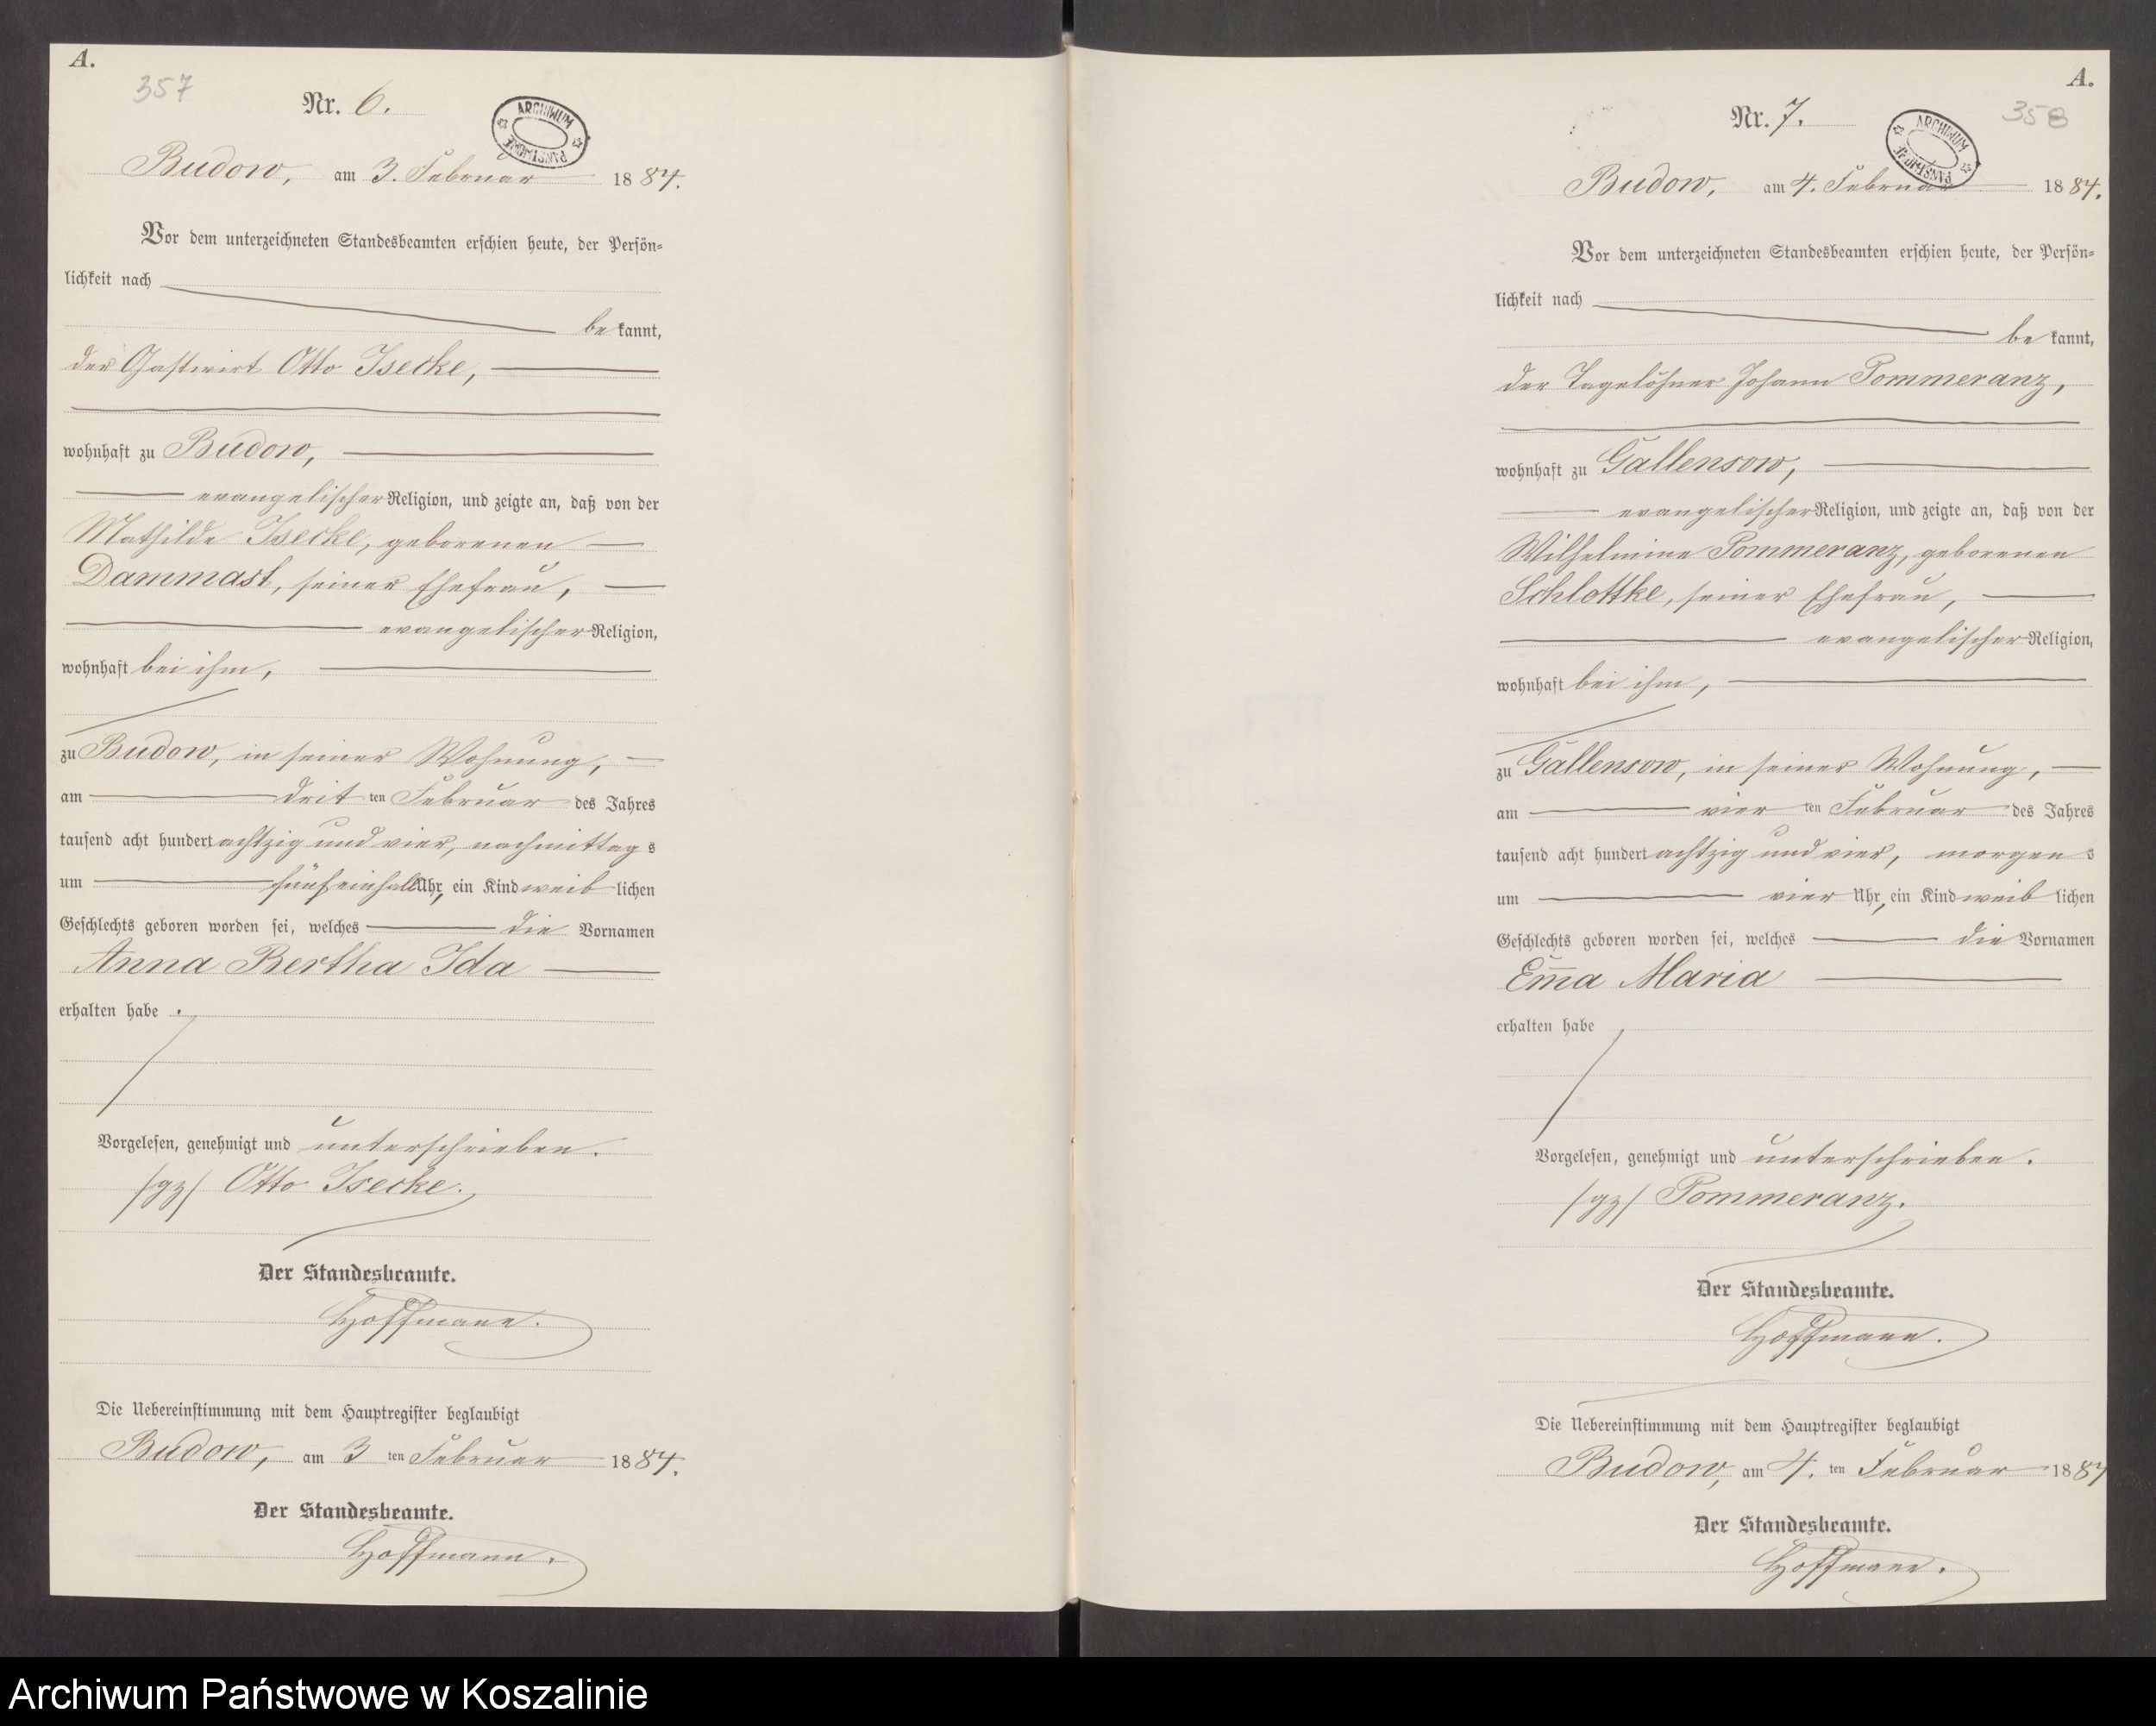 A.
357
Nr. 6.
ARCHIWUM PAŃSTWOWE
Budow, am 3. Februar 1884.
Vor dem unterzeichneten Standesbeamten erschien heute, der Persön=
lichkeit nach
be kannt,
der Gastwirt Otto Isecke,
wohnhaft zu Budow,
evangelischer Religion, und zeigte an, daß von der
Mathilde Isecke, geborenen
Dammast, seiner Ehefrau,
evangelischer Religion,
wohnhaft bei ihm,
zu Budow, in seiner Wohnung,
am drit ten Februar des Jahres
tausend acht hundert achtzig und vier, nachmittag s
um fünfeinhalb Uhr, ein Kind weib lichen
Geschlechts geboren worden sei, welches die Vornamen
Anna Bertha Ida
erhalten habe .
Vorgelesen, genehmigt und unterschrieben.
/gz/ Otto Isecke.
Der Standesbeamte.
Hoffmann.
Die Uebereinstimmung mit dem Hauptregister beglaubigt
Budow, am 3 ten Februar 1884.
Der Standesbeamte.
Hoffmann.
A.
358
Nr. 7.
ARCHIWUM PAŃSTWOWE
Budow, am 4. Februar 1884.
Vor dem unterzeichneten Standesbeamten erschien heute, der Persön=
lichkeit nach
be kannt,
der Tagelöhner Johann Pommeranz,
wohnhaft zu Gallensow,
evangelischer Religion, und zeigte an, daß von der
Wilhelmine Pommeranz, geborenen
Schlottke, seiner Ehefrau,
evangelischer Religion,
wohnhaft bei ihm,
zu Gallensow, in seiner Wohnung,
am vier ten Februar des Jahres
tausend acht hundert achtzig und vier, morgen s
um vier Uhr, ein Kind weib lichen
Geschlechts geboren worden sei, welches die Vornamen
Em̄a Maria
erhalten habe
Vorgelesen, genehmigt und unterschrieben.
/gz/ Pommeranz.
Der Standesbeamte.
Hoffmann.
Die Uebereinstimmung mit dem Hauptregister beglaubigt
Budow, am 4. ten Februar 1884
Der Standesbeamte.
Hoffmann.
Archiwum Państwowe w Koszalinie